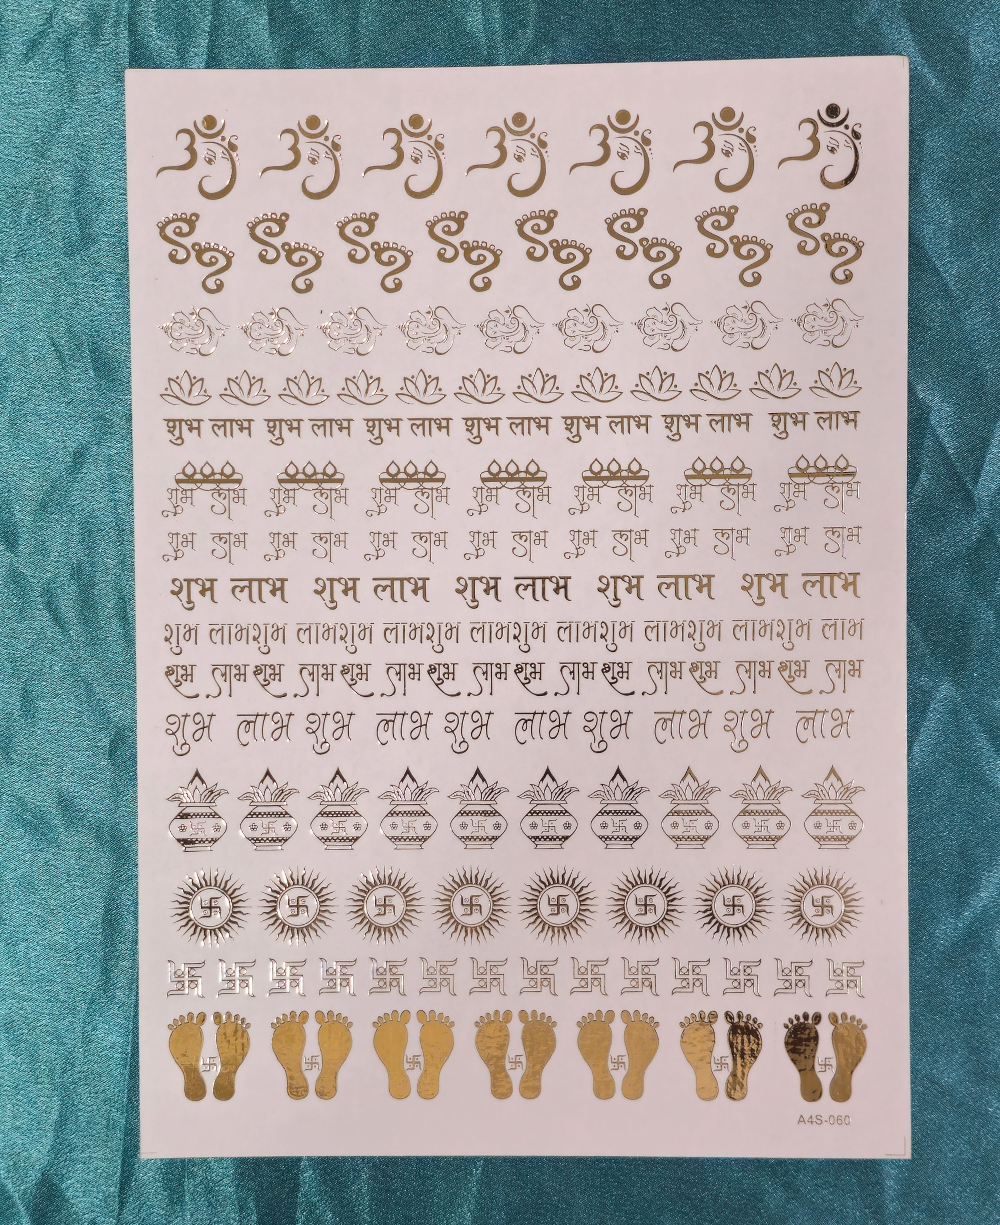 शुभ लाभ शुभ लाभ शुभ लाभ शुभ लाभ शुभ लाभ शुभ लाभ शुभ लाभ
शुभ लाभ शुभ लाभ शुभ लाभ शुभ लाभ शुभ लाभ शुभ लाभ शुभ लाभ
शुभ लाभ शुभ लाभ शुभ लाभ शुभ लाभ शुभ लाभ शुभ लाभ शुभ लाभ
शुभ लाभ शुभ लाभ शुभ लाभ शुभ लाभ शुभ लाभ
शुभ लाभ शुभ लाभ शुभ लाभ शुभ लाभ शुभ लाभ शुभ लाभ शुभ लाभ शुभ लाभ
शुभ लाभ शुभ लाभ शुभ लाभ शुभ लाभ शुभ लाभ शुभ लाभ शुभ लाभ शुभ लाभ
शुभ लाभ शुभ लाभ शुभ लाभ शुभ लाभ शुभ लाभ
A4S-060